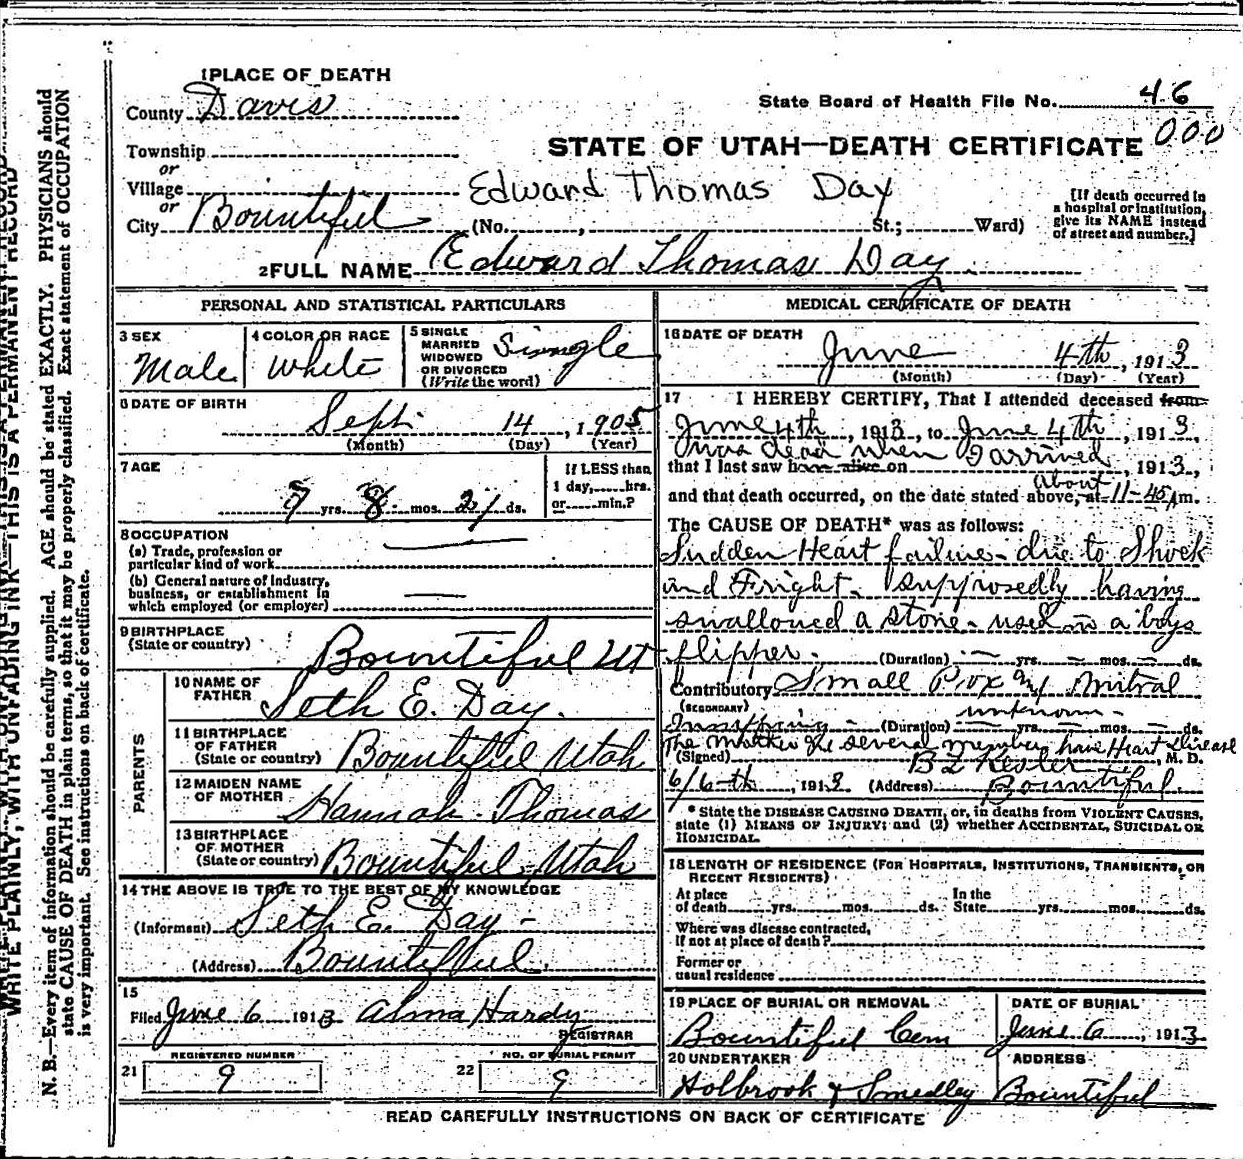 1 PLACE OF DEATH
County Davis
State Board of Health File No. 46
000
Township
STATE OF UTAH—DEATH CERTIFICATE
or
Village
Edward Thomas Day
or
City Bountiful (No. , St.; Ward)
[If death occurred in
a hospital or institution,
give its NAME instead
of street and number.]
2 FULL NAME Edward Thomas Day
PERSONAL AND STATISTICAL PARTICULARS
3 SEX
Male
4 COLOR OR RACE
White
5 SINGLE
MARRIED
WIDOWED
OR DIVORCED
(Write the word)
Single
6 DATE OF BIRTH
Sept. 14, 1905
(Month) (Day) (Year)
7 AGE
7 yrs. 8 mos. 21 ds.
If LESS than
1 day, hrs.
or min.?
8 OCCUPATION
(a) Trade, profession or
particular kind of work
(b) General nature of industry,
business, or establishment in
which employed (or employer)
9 BIRTHPLACE
(State or country)
Bountiful Ut
PARENTS
10 NAME OF
FATHER
Seth E. Day.
11 BIRTHPLACE
OF FATHER
(State or country)
Bountiful Utah
12 MAIDEN NAME
OF MOTHER
Hannah Thomas
13 BIRTHPLACE
OF MOTHER
(State or country)
Bountiful Utah
14 THE ABOVE IS TRUE TO THE BEST OF MY KNOWLEDGE
(Informant) Seth E. Day -
(Address) Bountiful.
15
Filed June 6 1913 Alma Hardy
REGISTRAR
REGISTERED NUMBER
21 9
NO. OF BURIAL PERMIT
22 9
MEDICAL CERTIFICATE OF DEATH
16 DATE OF DEATH
June 4th, 1913
(Month) (Day) (Year)
17 I HEREBY CERTIFY, That I attended deceased from
June 4th, 1913, to June 4th, 1913,
was dead when I arrived
that I last saw h alive on , 1913,
about
and that death occurred, on the date stated above, at 11-45 m.
The CAUSE OF DEATH* was as follows:
Sudden Heart failure - due to Shock
and Fright. Supposedly having
swallowed a stone - used in a boys
flipper. (Duration) yrs. mos. ds.
Contributory Small Pox Mitral
(SECONDARY) unknown -
(Duration) yrs. mos. ds.
The Mother & several members have Heart disease
(Signed) , M. D.
6/6-th, 1913 (Address) Bountiful.
* State the DISEASE CAUSING DEATH, or, in deaths from VIOLENT CAUSES,
state (1) MEANS OF INJURY; and (2) whether ACCIDENTAL, SUICIDAL OR
HOMICIDAL.
18 LENGTH OF RESIDENCE (FOR HOSPITALS, INSTITUTIONS, TRANSIENTS, OR
RECENT RESIDENTS)
At place
of death yrs. mos. ds.
In the
State yrs. mos. ds.
Where was disease contracted,
If not at place of death?
Former or
usual residence
19 PLACE OF BURIAL OR REMOVAL
Bountiful Cem
DATE OF BURIAL
June 6, 1913.
20 UNDERTAKER
Holbrook & Smedley
ADDRESS
Bountiful
READ CAREFULLY INSTRUCTIONS ON BACK OF CERTIFICATE
WRITE PLAINLY, WITH UNFADING INK—THIS IS A PERMANENT RECORD
N. B.—Every item of information should be carefully supplied. AGE should be stated EXACTLY. PHYSICIANS should
state CAUSE OF DEATH in plain terms, so that it may be properly classified. Exact statement of OCCUPATION
is very important. See instructions on back of certificate.